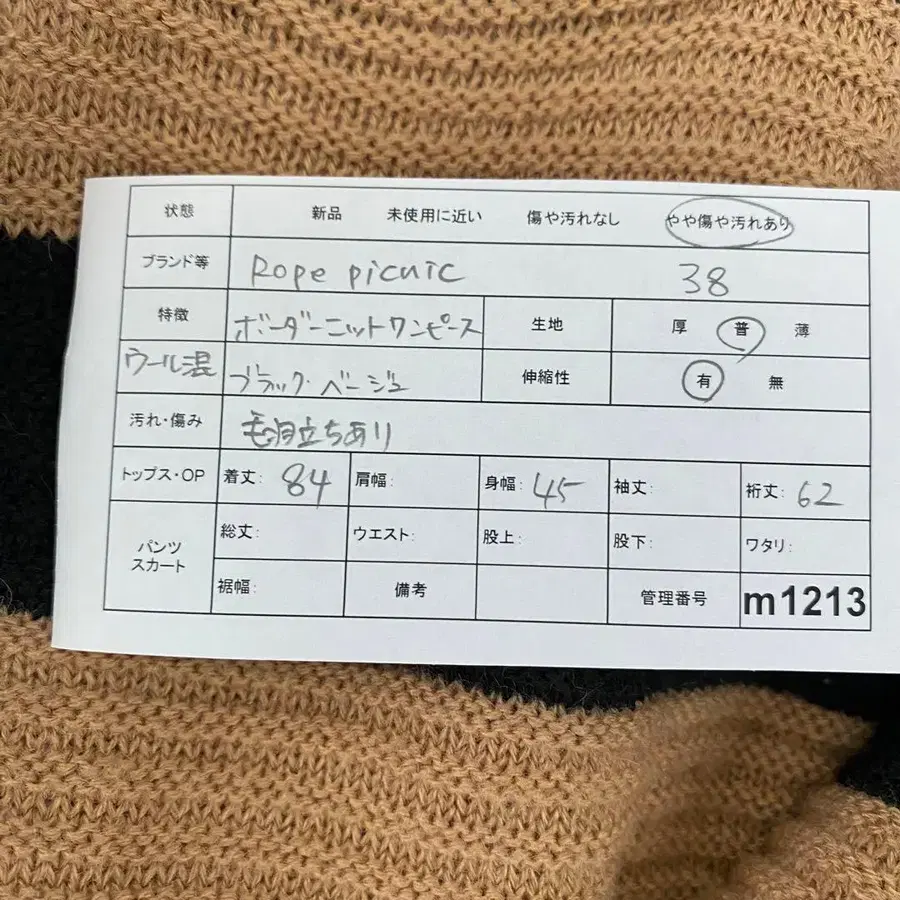 状態 新品 未使用に近い 傷や汚れなし やや傷や汚れあり
ブランド等 Rope picnic 38
特徴 ボーダーニットワンピース 生地 厚 普 薄
ウール混 ブラック・ベージュ 伸縮性 有 無
汚れ・傷み 毛羽立ちあり
トップス・OP 着丈: 84 肩幅: 身幅: 45 袖丈: 裄丈: 62
パンツ スカート 総丈: ウエスト: 股上: 股下: ワタリ:
裾幅: 備考 管理番号 m1213